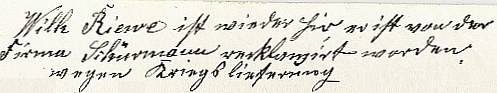 Wilh Riewe ist wieder hir er ist von der
Firma Schürmann recklamirt worden.
wegen Kriegslieferung